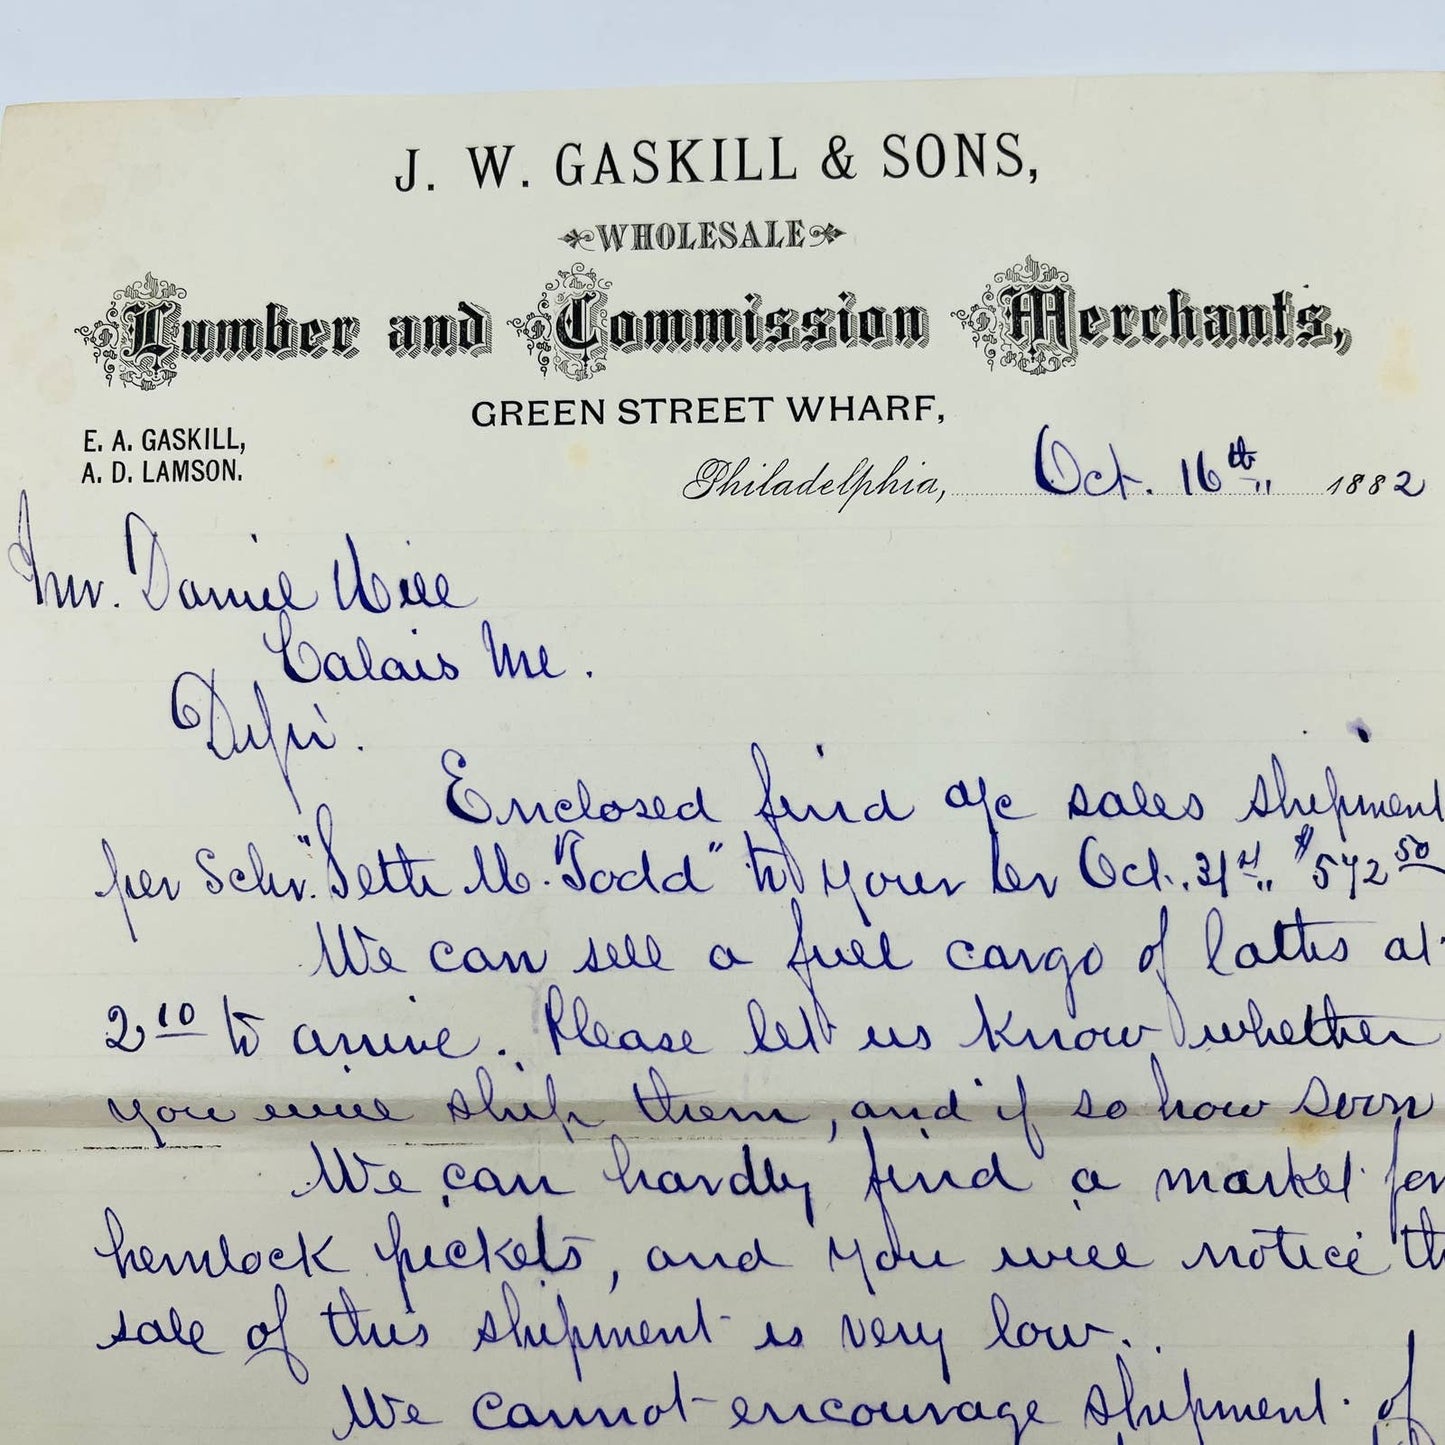 J. W. GASKILL & SONS,
WHOLESALE
Lumber and Commission Merchants,
GREEN STREET WHARF,
E. A. GASKILL,
A. D. LAMSON.
Philadelphia, Oct. 16th 1882
Mr. Daniel Hill
Calais Me.
D/Sir.
Enclosed find a/c sales shipment
per Schr. "Seth M. Todd" to your Cr Oct. 31st, $572 50
We can sell a full cargo of laths at
2 10 to arrive. Please let us know whether
you will ship them, and if so how soon
We can hardly find a market for
hemlock pickets, and you will notice th
sale of this shipment is very low.
We cannot encourage shipment of